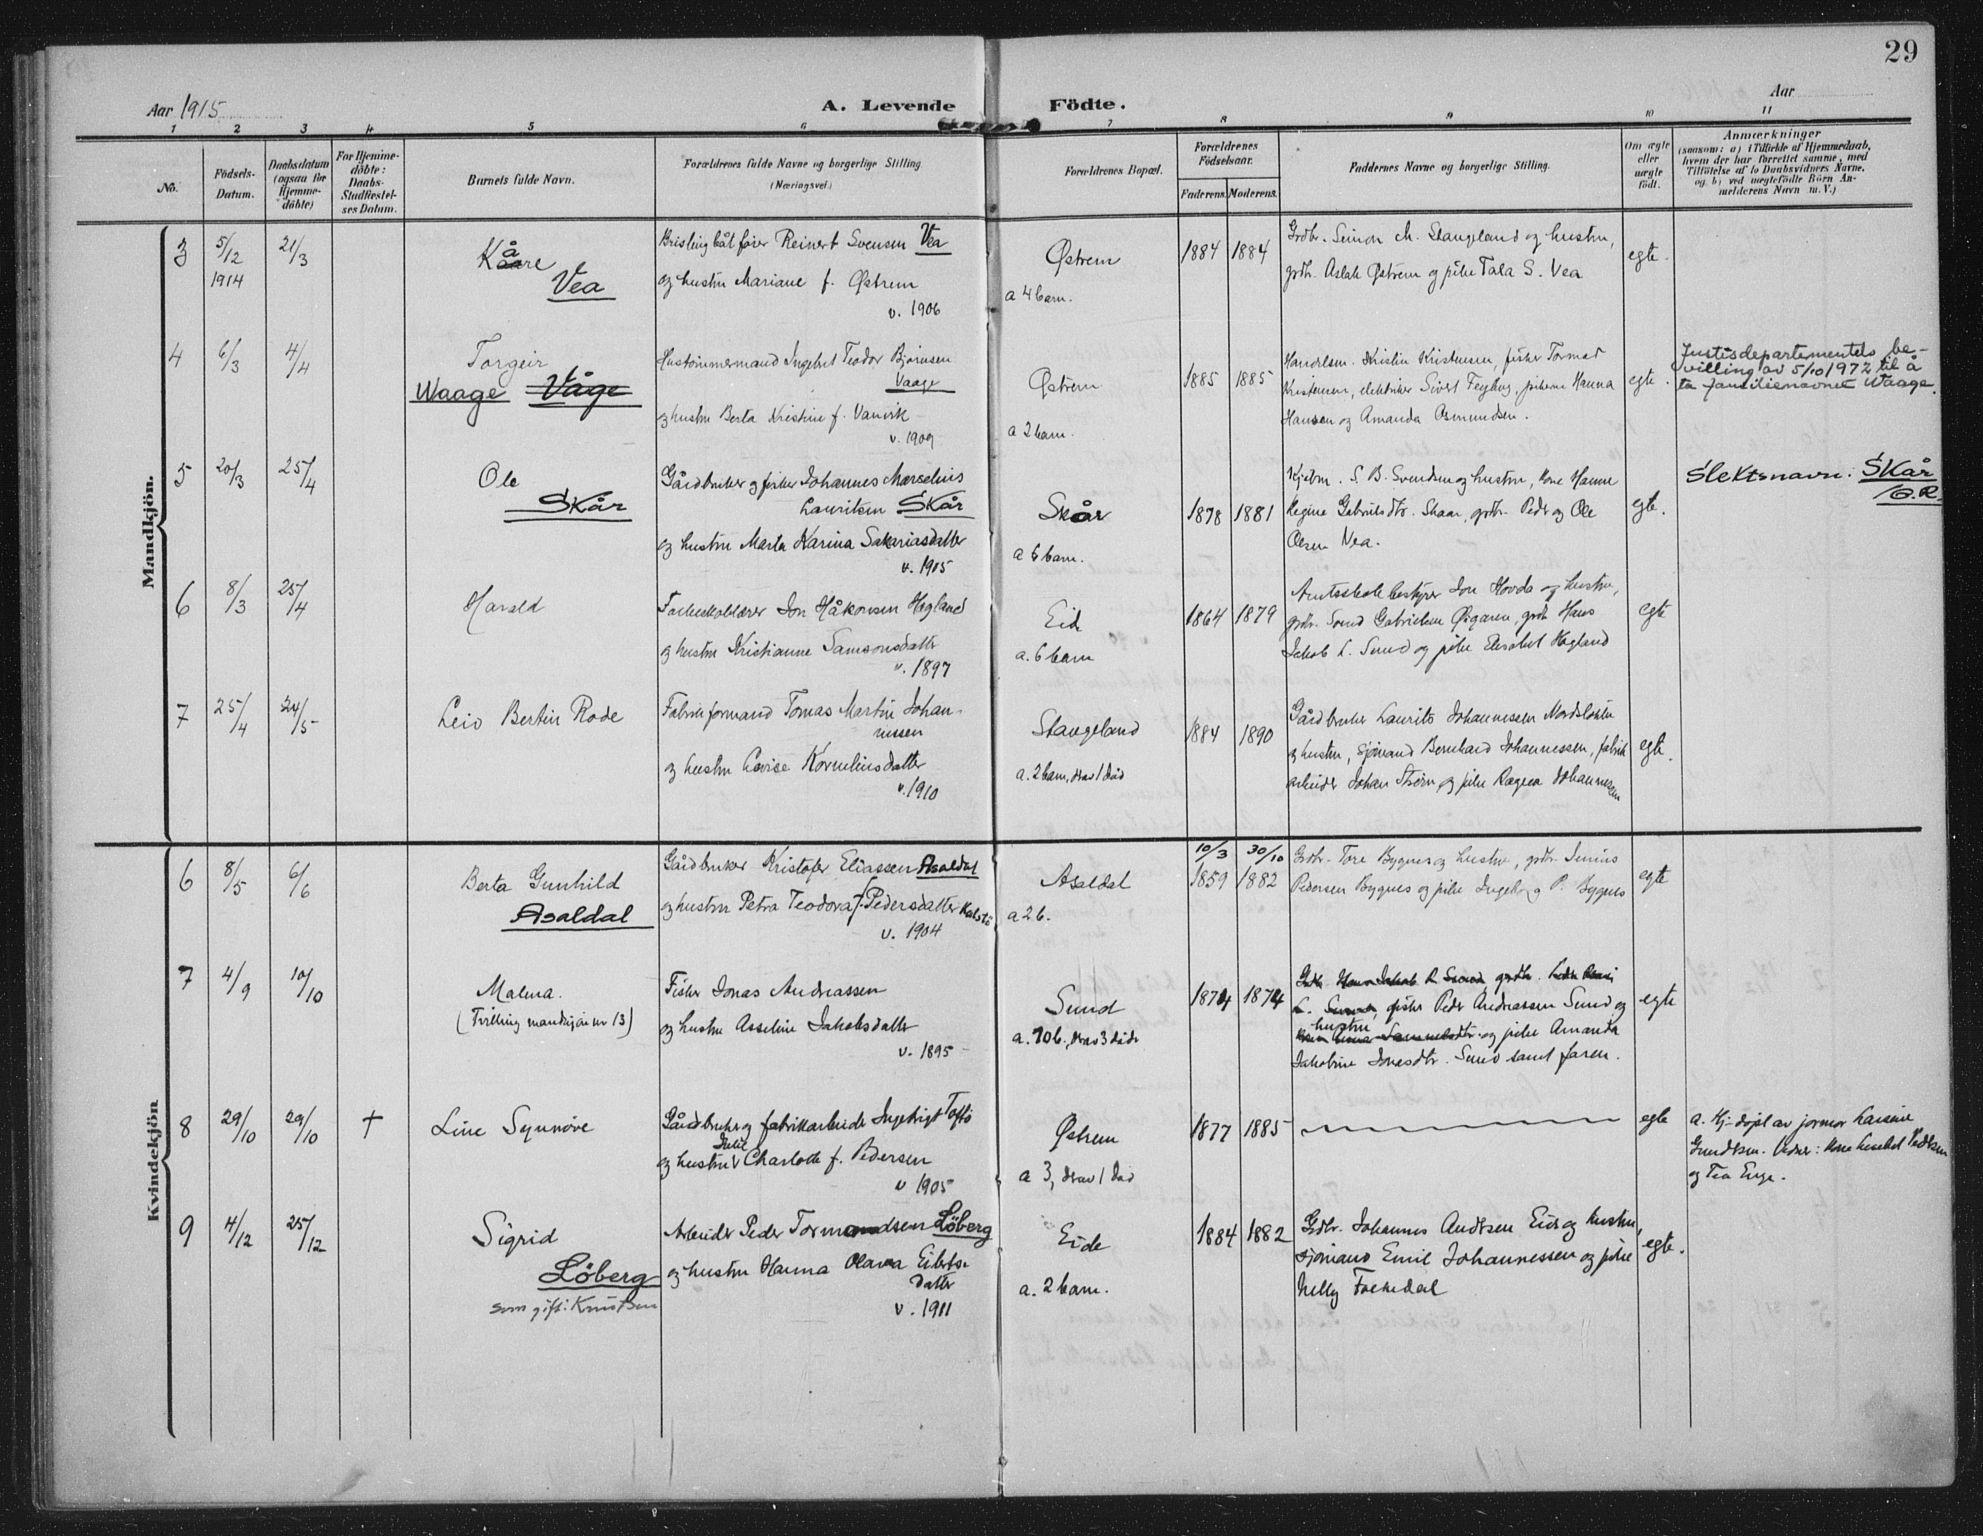 29
Aar 1915
A. Levende Födte.
Aar
1 2 3 4 5 6 7 8 9 10 11
No.
Födsels-
Datum.
Daabsdatum
(ogsaa for
Hjemme-
döbte)
For Hjemme-
döbte:
Daabs-
Stadfæstel-
ses Datum.
Barnets fulde Navn.
Forældrenes fulde Navne og borgerlige Stilling
(Næringsvei.)
Forældrenes Bopæl.
Forældrenes
Födselsaar.
Faderens. Moderens.
Faddernes Navne og borgerlige Stilling.
Om ægte
eller
uægte
født.
Anmærkninger
(saasom: a) i Tilfælde af Hjemmedaab,
hvem der har forrettet samme, med
Tilføielse af to Daabsvidners Navne,
og b) ved uægtefödte Börn An-
melderens Navn m. V.)
Mandkjön.
3 5/12 1914 21/3
Kåre
Vea
Brislingbåtfører Reinert Svensen Vea
og hustru Mariane f. Østrem
v. 1906
Østrem
a 4 barn.
1884 1884
Grdbr. Simon M. Stangeland og hustru,
grdbr. Aslak Østrem og pike Tala S. Vea
egte.
4 6/3 4/4
Torgeir
Waage Våge
Hustømmermand Ingebret Teodor Bjørnsen
Vaage
og hustru Berta Kristine f. Vanvik
v. 1909
Østrem
a 2 barn.
1885 1885
Handelsm. Kristin Kristensen, fisker Tormod
Kristensen, elektriker Sivert, pikerne Hanna
Hansen og Amanda Asmundsen.
egte.
Justisdepartementets be-
villing av 5/10 1972 til å
ta familienavnet Waage.
5 20/3 25/4
Ole
Skår
Gårdbruker og fisker Johannes Marselius
Lauritsen Skår
og hustru Marta Karina Sakariasdatter
v. 1905
Skår
a 6 barn.
1878 1881
Kjøbm. S. B. Svendsen og hustru, kone Hanne
Regine Gabrielsdtr. Skaar, grdbr. Peder og Ole
Olsen Vea.
egte.
Slektsnavn: Skår
6 8/3 25/4
Harald
Folkeskolelærer Jon Håkonsen Hogland
og hustru Kristianne Samsonsdatter
v. 1897
Eid
a. 6 barn
1864 1879
Amtsskolebestyrer Jon Hovda og hustru,
grdbr. Sond Gabrielsen Øygaren, grdb Hans
Jakob L. Sund og pike Elisabet Hogland
egte
7 25/4 24/5
Leiv Bertin Rode
Fabrikformand Tomas Martin Johan-
nessen
og hustru Lovise Korneliusdatter
v. 1910
Stangeland
a. 2 barn, derav 1 død
1884 1890
Gårdbruker Laurits Johannessen Nordslokken
og hustru, sjömand Bernhard Johannessen, fabrik
arbeider Johan Thorn, og pike Ragna Johannessen
egte.
Kvindekjön
6 8/5 6/6
Berta Gunhild
Asaldal
Gårdbruker Kristofer Eliassen Asaldal
og hustru Petra Teodora f. Pedersdatter Kalstø
v. 1904
Asaldal
a 2 b.
10/3 1859 30/10 1882
Grdbr. Tore Bygnes og hustru, grdbr. Simius
Pedersen Bygnes og pike Ingeborg P. Bygnes
egte
7 4/9 10/10
Malena.
(Tvilling mandkjön nr 13)
Fisker Jonas Andreassen
og hustru Asseline Jakobsdatter
v. 1895
Sund
a. 10 b., derav 3 døde
1874 1874
Grdb. Hans Jakob L Sund grdbr.
L. Sund, fisker Peder Andreassen Sund og
hustru
og pike Amanda
Jakobine Jonasdtr. Sund samt faren.
egte
8 29/10 29/10 †
Line Synnöve
Gårdbruker og fabrikarbeider Ingebrigt Tofte
og hustru Julie Charlotte f. Pedersen
v 1905
Østrem
a 3, derav 1 død
1877 1885
egte
a. Hj. døpt av jormor Larsine
Gundersen. Vidner: Kone Lisebet Pedersen
og Tea Enge.
9 4/12 25/12
Sigrid
Löberg
som gift: Knutsen
Arbeider Peder Tormodsen Löberg
og hustru Hanna Olava Eilerts-
datter
v. 1911
Eide
a. 2 barn.
1884 1882
Grdbr. Johannes Andersen Eide og hustru,
sjömand Emil Johannessen og pike
Nelly Fosnedal
egte.